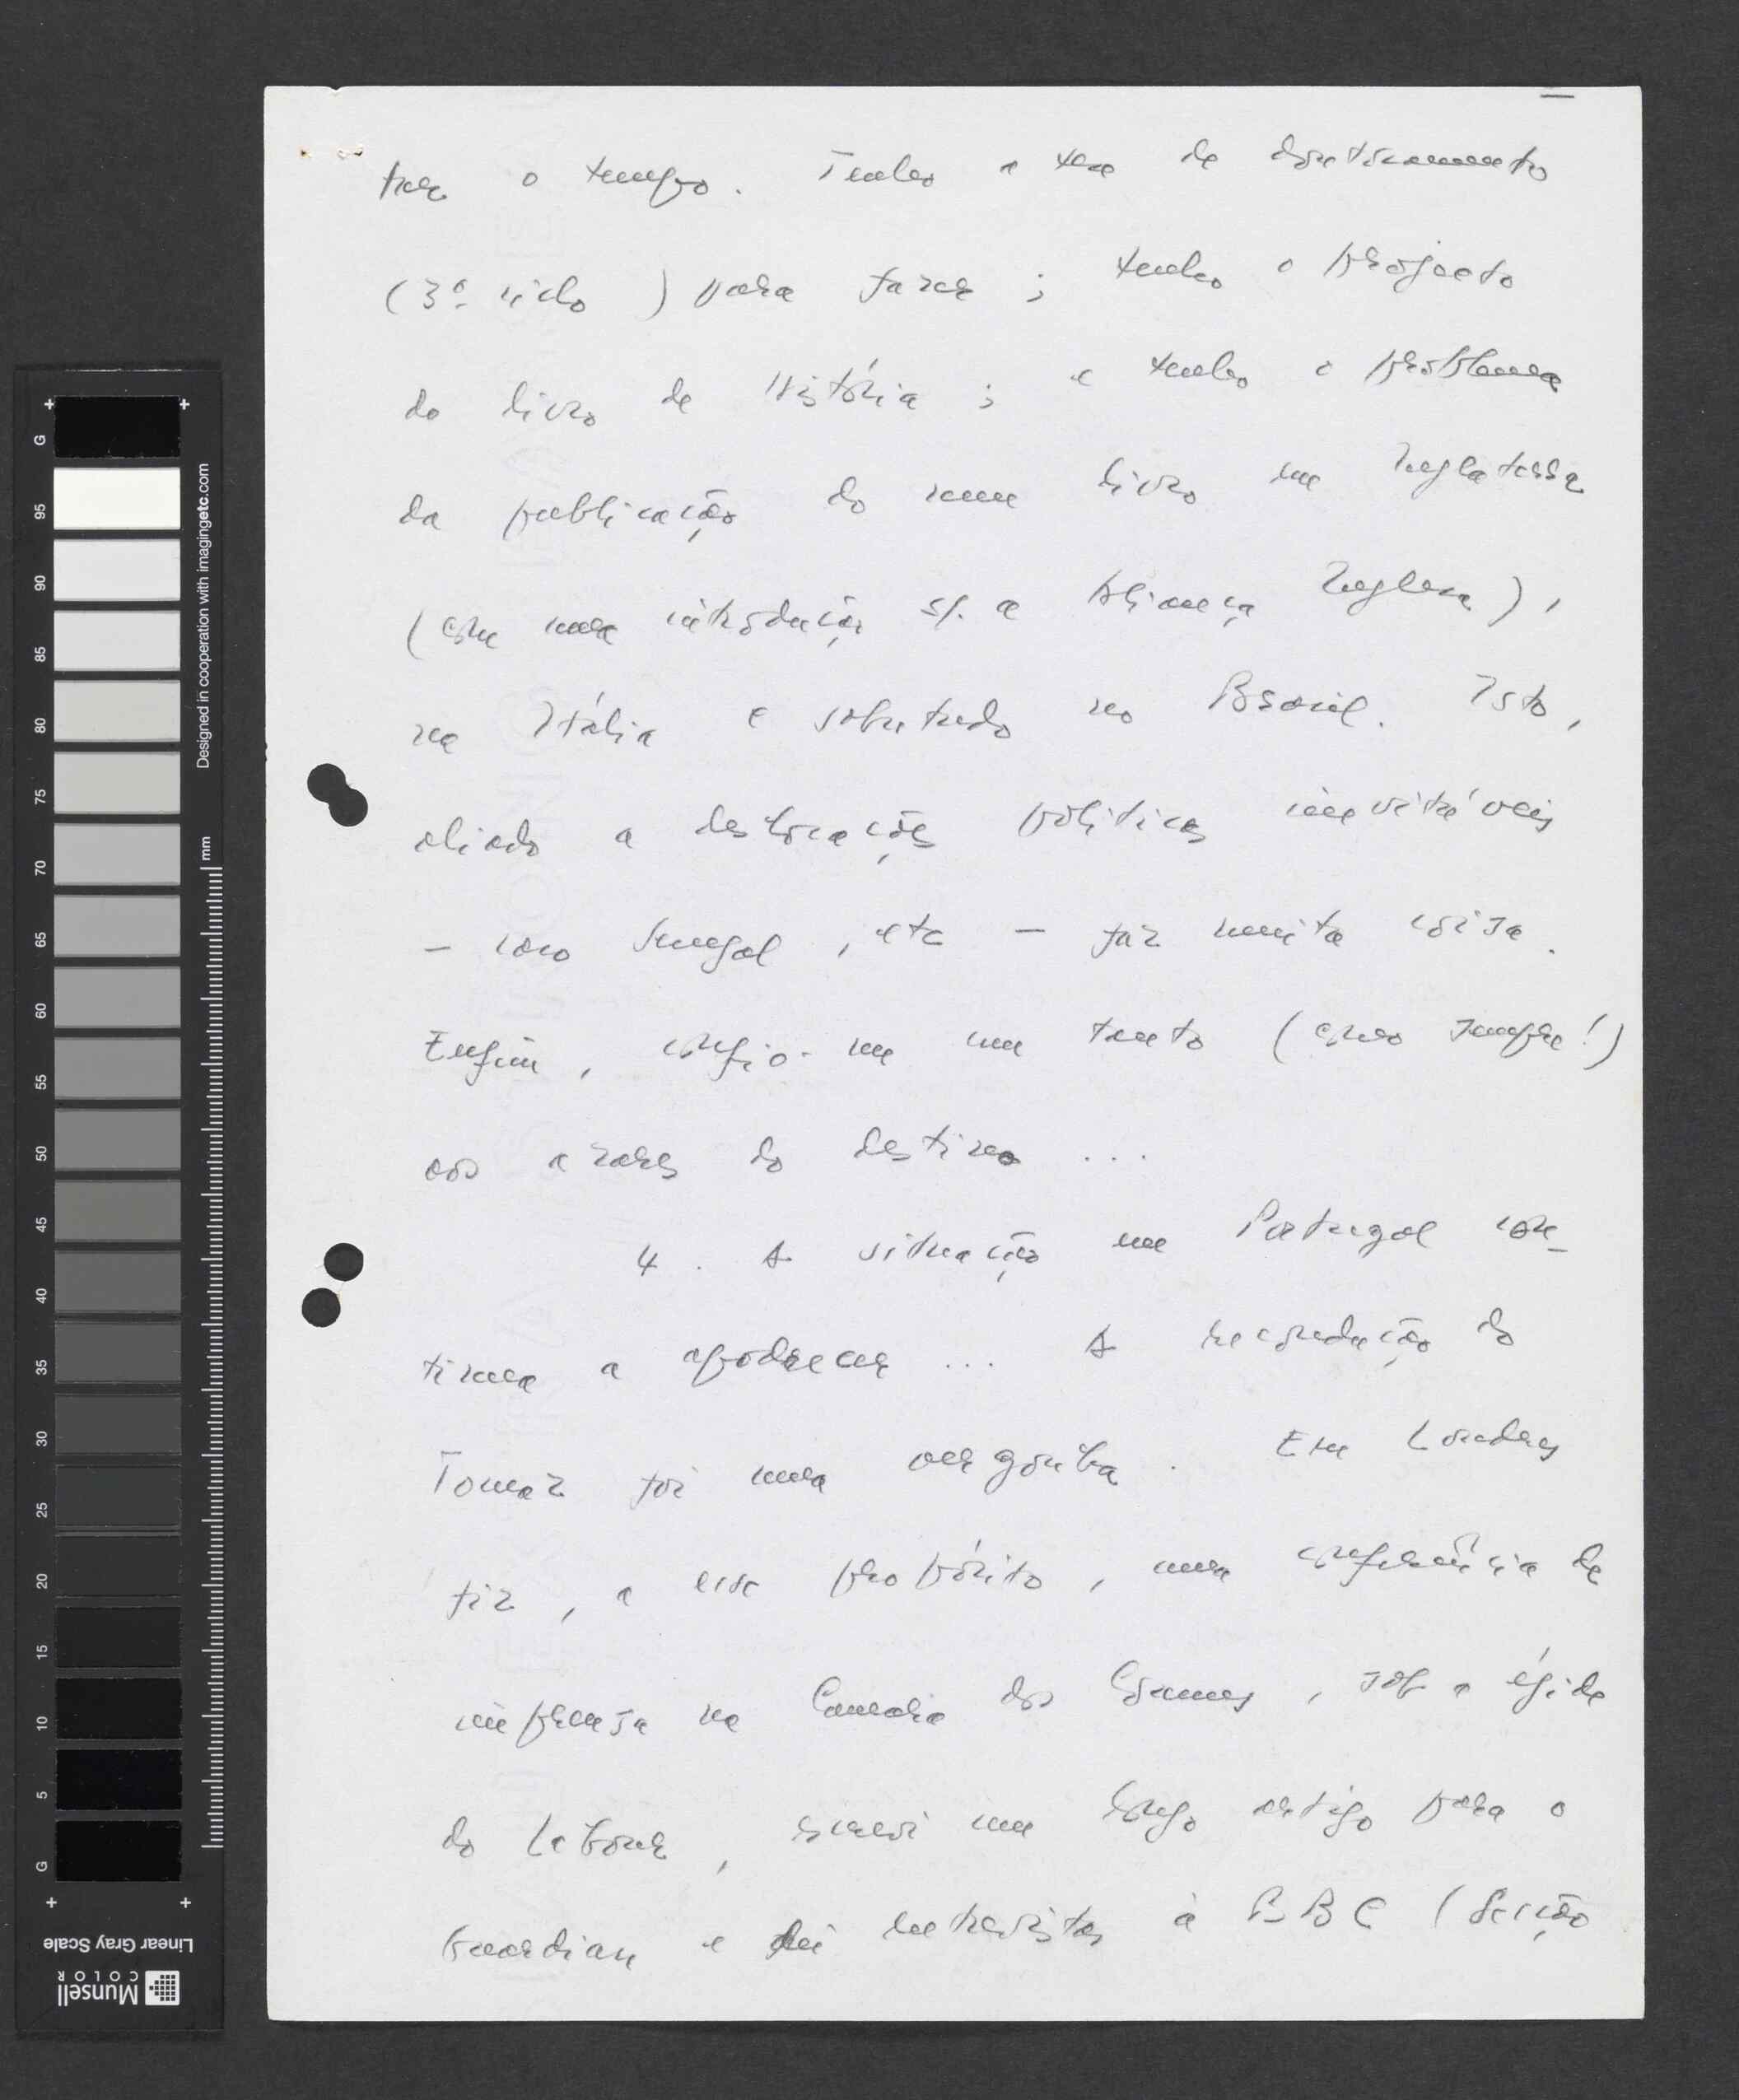 trar o tempo. Tenho a tese de doutoramento
(3º ciclo) para fazer; tenho o projecto
do livro de História; e tenho o problema
da publicação do meu livro em Inglaterra
(com uma introdução s/. a Aliança Inglesa),
na Itália e sobretudo no Brasil. Isto,
aliado a deslocações políticas inevitáveis
- como Senegal, etc - faz muita coisa.
Enfim, confio-me um tanto (como sempre!)
aos azares do destino ...
4. A situação em Portugal con-
tinua a apodrecer ... A recondução do
Tomaz foi uma vergonha. Em Londres
fiz, a esse propósito, uma conferência de
imprensa na Camara dos Comuns, sob a égide
do Labour, escrevi um longo artigo para o
Guardian e dei entrevistas à BBC (Secção
Designed in cooperation with imagingetc.com
mm
G 95 90 85 80 75 70 65 60 55 50 45 40 35 30 25 20 15 10 5 G
Linear Gray Scale
Munsell
COLOR